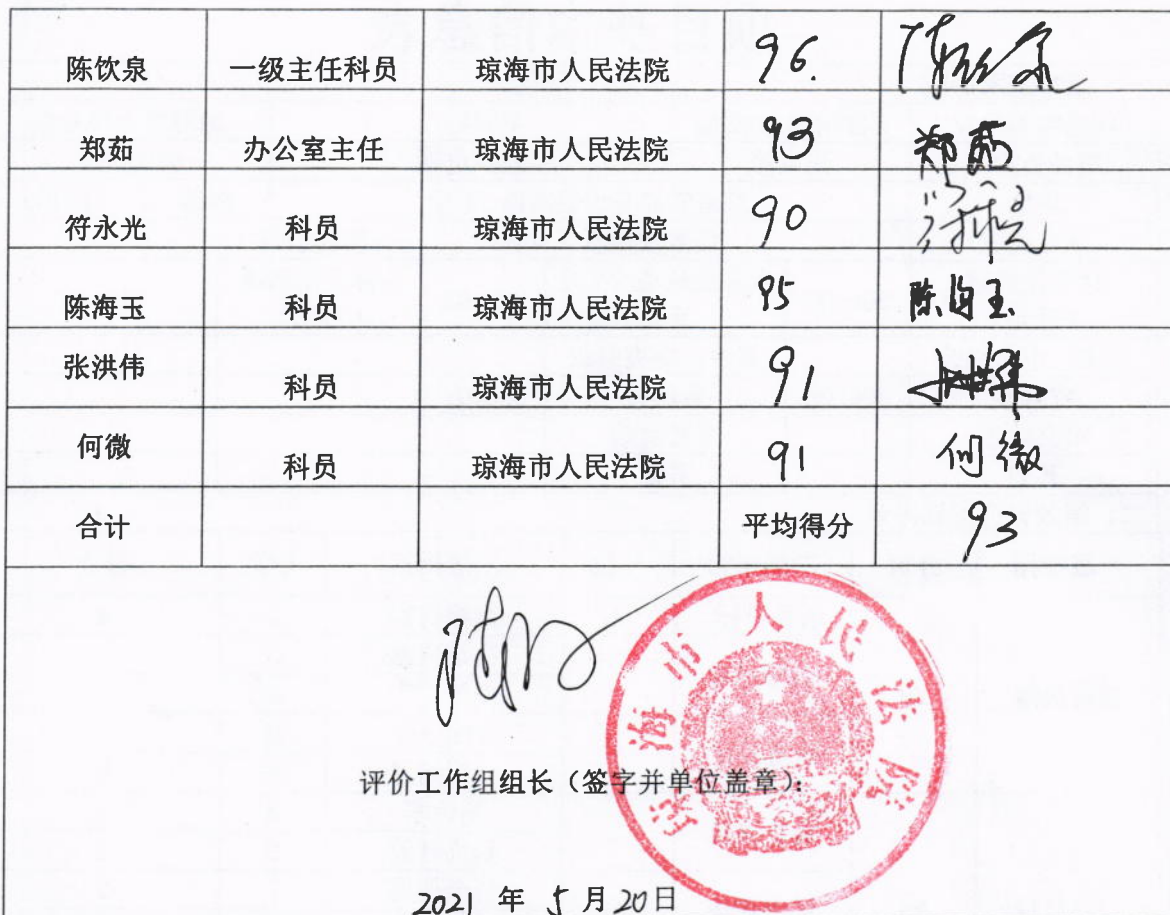 陈饮泉 一级主任科员 琼海市人民法院 96.
郑茹 办公室主任 琼海市人民法院 93 郑茹
符永光 科员 琼海市人民法院 90 符永光
陈海玉 科员 琼海市人民法院 95 陈海玉
张洪伟 科员 琼海市人民法院 91 张洪伟
何微 科员 琼海市人民法院 91 何微
合计 平均得分 93
琼海市人民法院
评价工作组组长（签字并单位盖章）：
2021 年 5 月 20 日